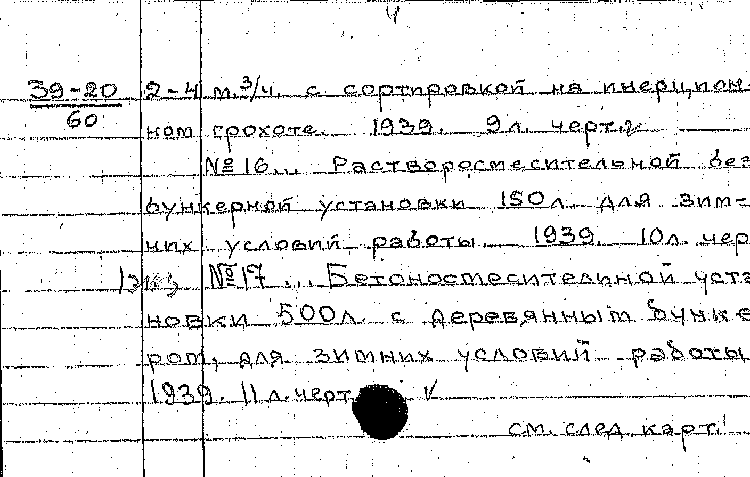 4
39-20 2-4 м.³/ч. с сортировкой на инерцион-
60
ном грохоте. 1939. 9л. черт.
№16... Растворосмесительной без
бункерной установки 150л. для зим-
них условий работы. 1939. 10л. чер
№17... Бетоносмесителиной уста
новки 500л. с деревянным бунке
ром, для зимних условий работы
1939. 11л. черт.
см. след. карт.